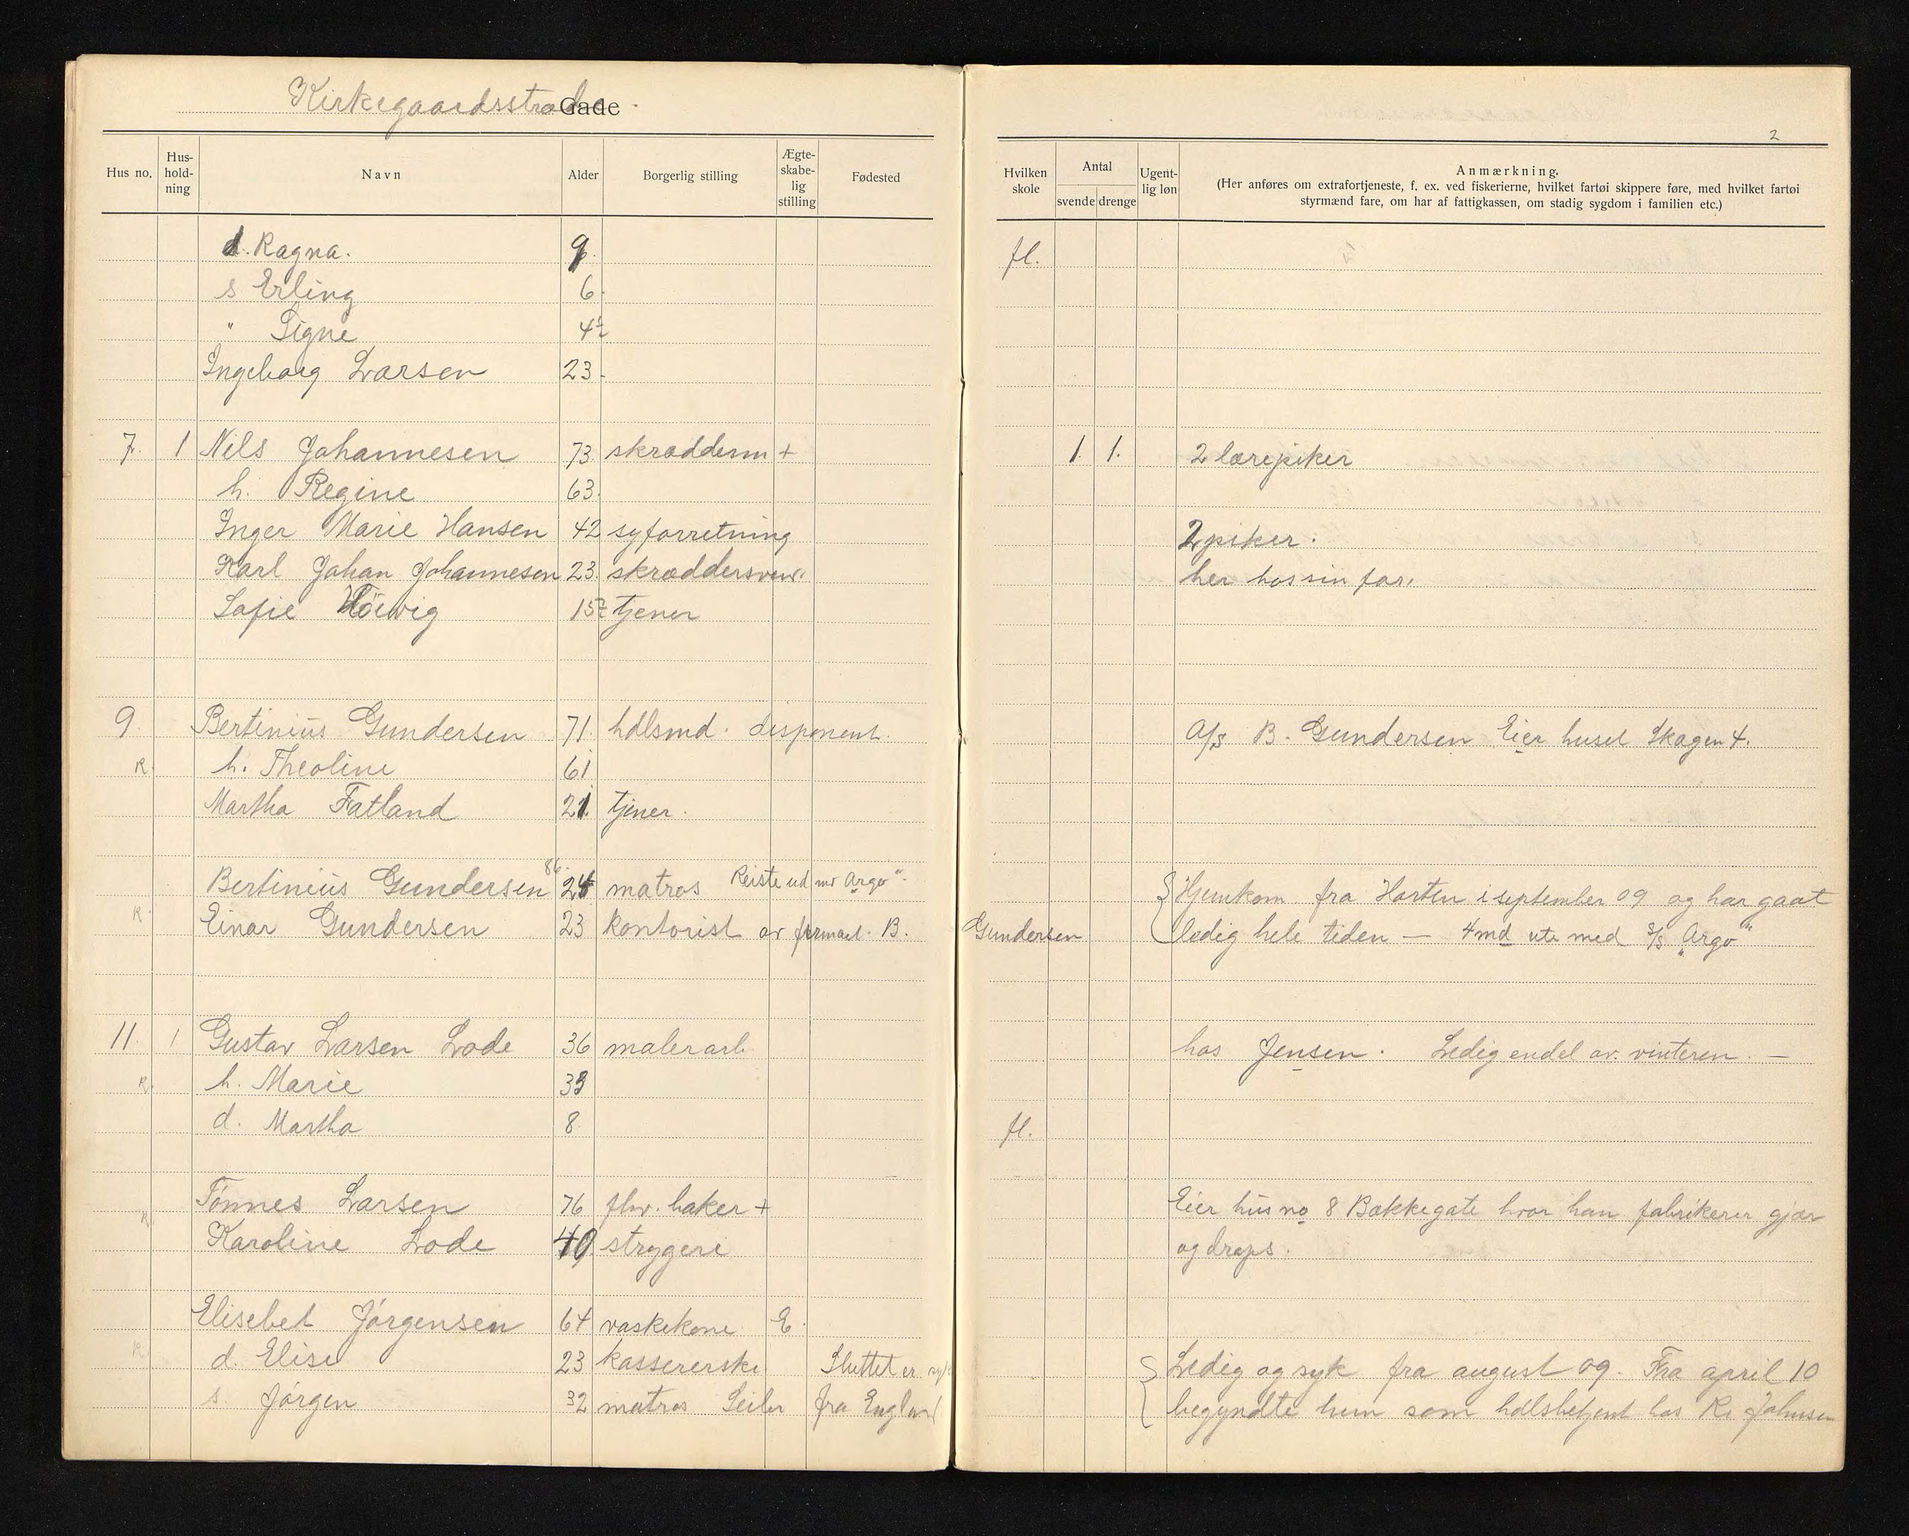 Kirkegaardsstræde Gade
2
Hus no. Hus-hold-ning Navn Alder Borgerlig stilling Ægte-skabe-lig stilling Fødested Hvilken skole Antal svende drenge Ugent-lig løn Anmærkning.
(Her anføres om extrafortjeneste, f. ex. ved fiskerierne, hvilket fartøi skippere føre, med hvilket fartøi
styrmænd fare, om har af fattigkassen, om stadig sygdom i familien etc.)
d. Ragna. 9. fl.
s Erling 6.
" Signe 4½
Ingeborg Larsen 23.
7. 1 Nils Johannesen 73 skrædderm + 1. 1. 2 lærepiker
h. Regine 63.
Inger Marie Hansen 42 syforretning 2 piker.
Karl Johan Johannesen 23. skræddersven. her hos sin far.
Sofie Höivig 15½ tjener
9. Bertinius Gundersen 71. hdlsmd. disponent. A/S B. Gundersen Eier huset Skagen 4.
R. h. Theoline 61
Martha Fatland 21. tjener.
Bertinius Gundersen 86 24 matros Reiste ud m. Argo". Hjemkom fra Horten i september 09 og har gaat
R. Einar Gundersen 23 kontorist av firmaet B. Gundersen ledig hele tiden — 4 md ute med S/S "Argo"
11. 1 Gustav Larsen Lode 36 malerarb. hos Jensen. Ledig endel av vinteren. —
R. h. Marie 38
d. Martha 8 fl.
R Tönnes Larsen 76 fhv. baker + Eier hus no 8 Bakkegate hvor han fabrikerer gjær
Karoline Lode 40 strygeri og drops.
Elisebet Jörgensen 64 vaskekone E.
R d. Elise 23 kassererske Sluttet er Ledig og syk fra august 09. Fra april 10
s. Jörgen 32 matros Seiler fra England begyndte hun som hdlsbetjent hos Johnsen